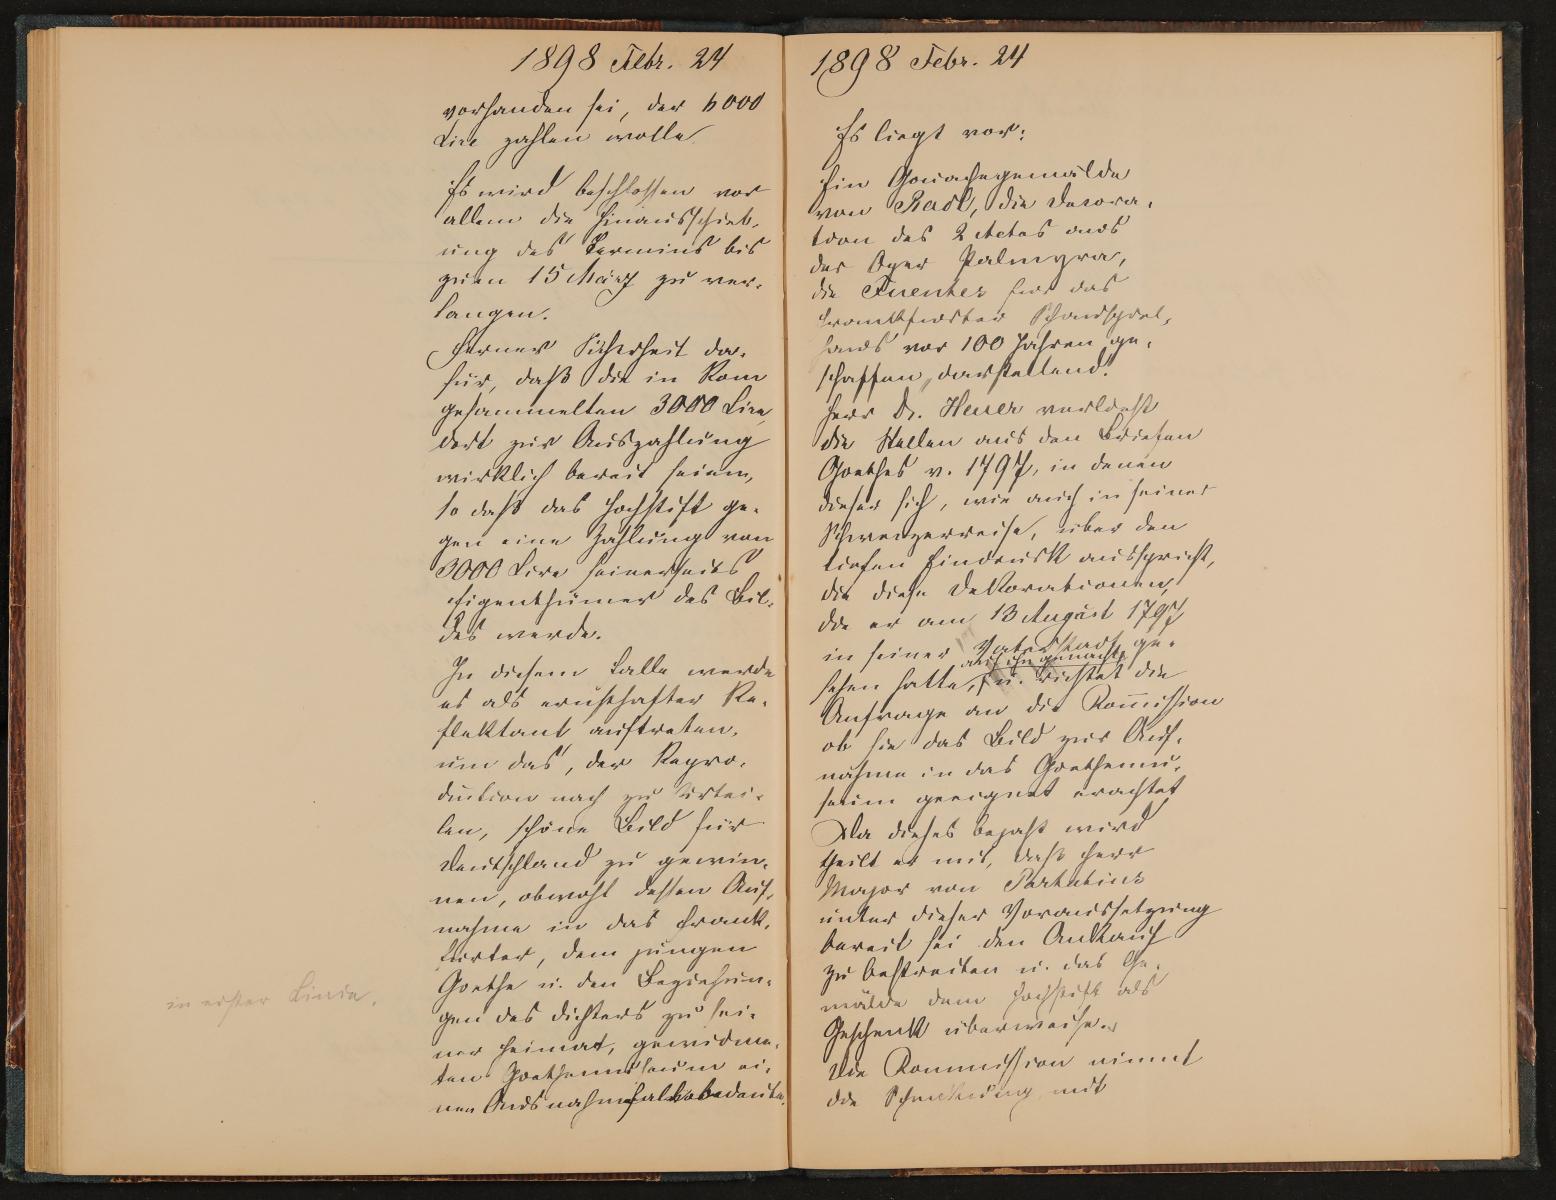 1898 Febr. 24
vorhanden sei, der 6000
Lire zahlen wolle.
Es wird beschlossen vor
allem die Hinausschieb-
ung des Termins bis
zum 15 März zu ver-
langen.
Ferner Sicherheit da-
für, daß die in Rom
gesammelten 3000 Lire
dort zur Auszahlung
wirklich bereit seien,
so daß das Hochstift ge-
gen eine Zahlung von
3000 Lire seinerseits
Eigenthümer des Bil-
des werde.
In diesem Falle werde
es als ernsthafter Re-
flektant auftreten,
um das, der Repro-
duction nach zu urtei-
len, schöne Bild für
Deutschland zu gewin-
nen, obwohl dessen Auf-
nahme in das Frank-
furter, dem jungen
Goethe u. den Beziehun-
gen des Dichters zu sei-
ner Heimat, gewidme-
in erster Linie.
ten Goethemuseum ei-
nen Ausnahmefall bedeute.
1898 Febr. 24
Es liegt vor:
Ein Gouachegemälde
von Radl, die Decora-
tion des 2 Actes aus
der Oper Palmyra,
die Fuentes für das
Frankfurter Schauspiel-
haus vor 100 Jahren ge-
schaffen, darstellend.
Herr Dr. Heuer verliest
die Stellen aus den Briefen
Goethes v. 1797, in denen
dieser sich, wie auch in seiner
Schweizerreise, über den
tiefen Eindruck ausspricht,
die diese Dekorationen,
die er am 13 August 1797
in seiner Vaterstadt ge-
auf ihn gemacht,
sehen hatte, u. richtet die
Anfrage an die Kommission
ob sie das Bild zur Auf-
nahme in das Goethemu-
seum geeignet erachtet
Da dieses bejaht wird
theilt er mit, daß Herr
Major von
unter dieser Voraussetzung
bereit sei den Ankauf
zu bestreiten u. das Ge-
mälde dem Hochstift als
Geschenk überweise.
Die Kommission nimmt
die Schenkung mit